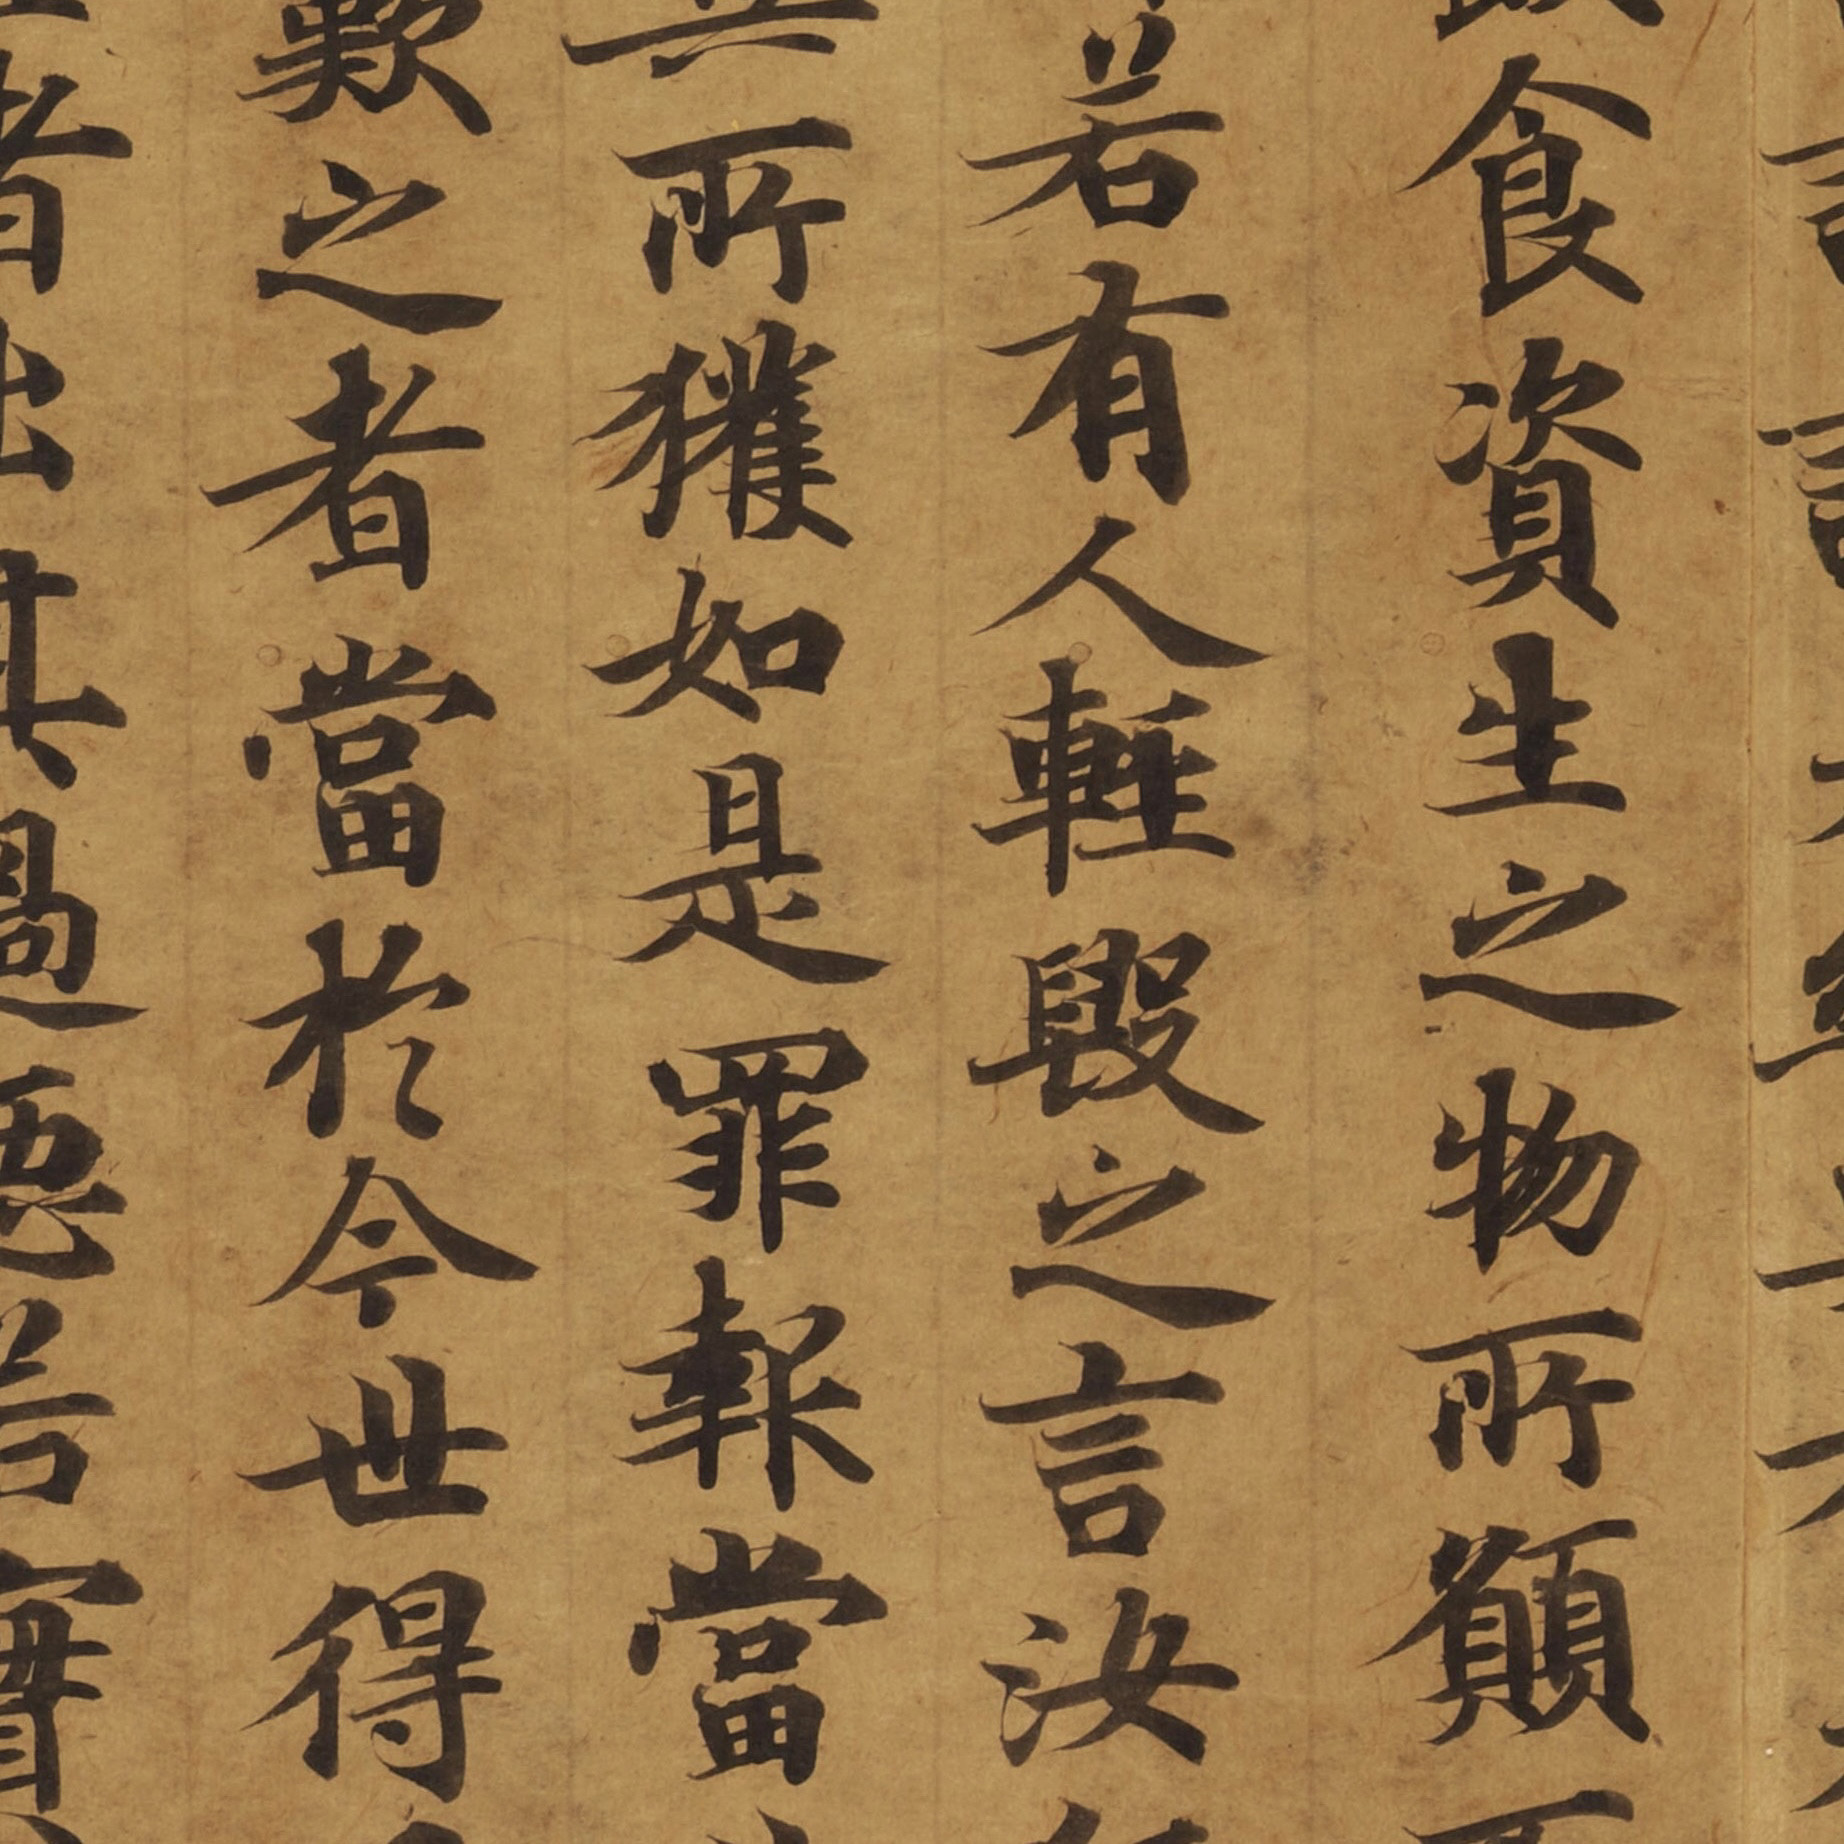 食資生之物所願
若有人輕毀之言汝
所獲如是罪報當
歎之者當於今世得
者出其過惡若實